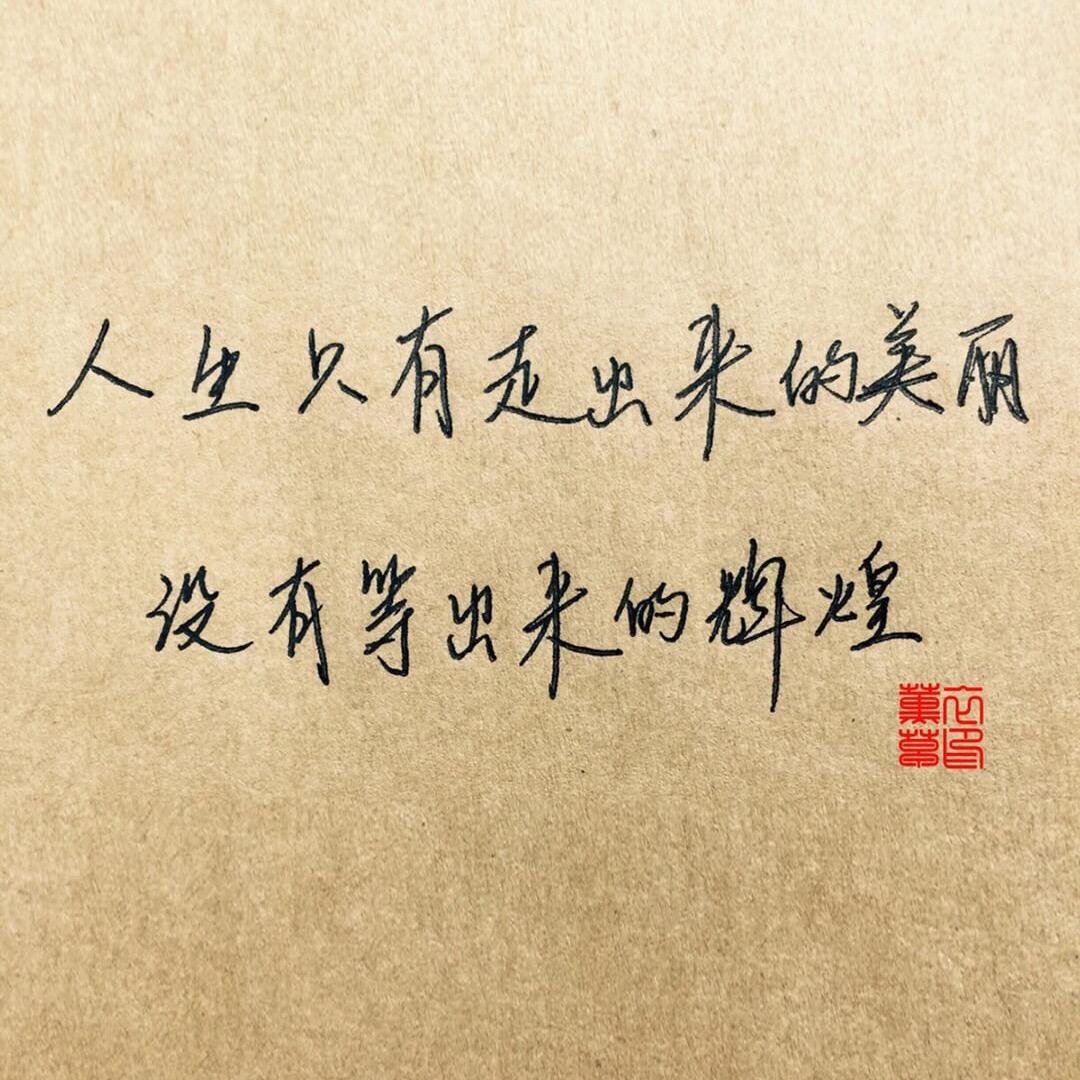 人生只有走出来的美丽
没有等出来的辉煌